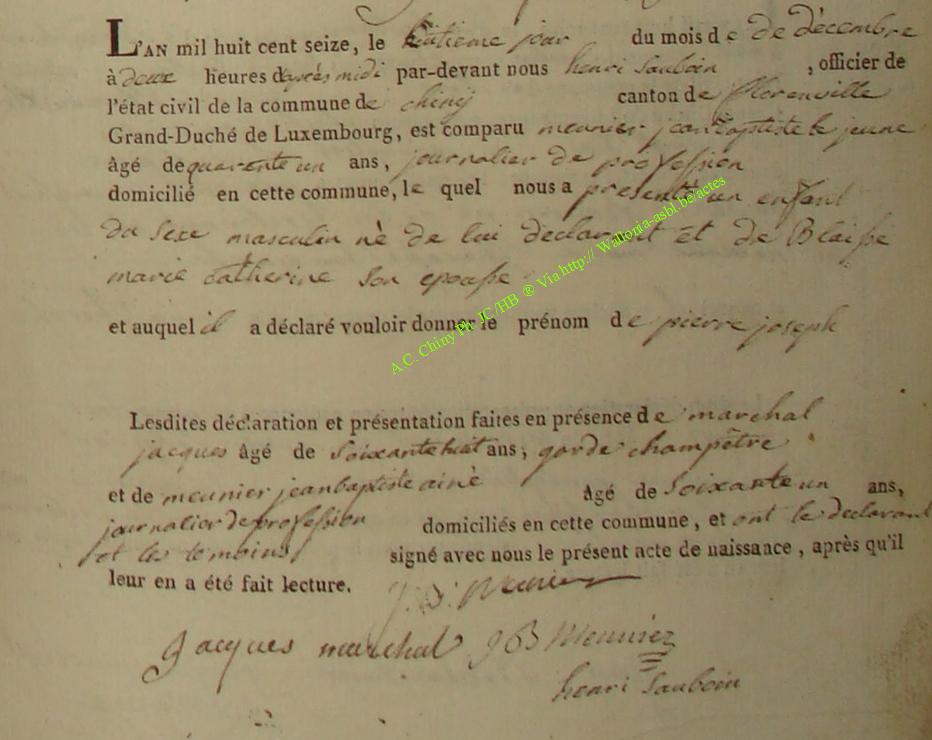 L'AN mil huit cent seize, le huitieme jour du mois de de décembre
à deux heures d'après midi par-devant nous henri Sauboin , officier de
l'état civil de la commune de chiny canton de florenville
Grand-Duché de Luxembourg, est comparu meunier jeanbaptiste le jeune
âgé de quarente un ans, journalier de profession
domicilié en cette commune, le quel nous a presenté un enfant
du sexe masculin né de lui declarant et de Blaisse
marie catherine son epouse
et auquel il a déclaré vouloir donner le prénom de pierre joseph
Lesdites déclaration et présentation faites en présence de marchal
jacques âgé de soixante huit ans, garde champêtre
et de meunier jeanbaptiste ainé âgé de soixante un ans,
journalier de profession domiciliés en cette commune, et ont le declarant
et les temoins signé avec nous le présent acte de naissance, après qu'il
leur en a été fait lecture. J. B. Meunier
Jacques marchal JB Meuniez
henri Sauboin
A.C. Chiny Ph JC/HB ® Via http:// Wallonia-asbl.be/actes